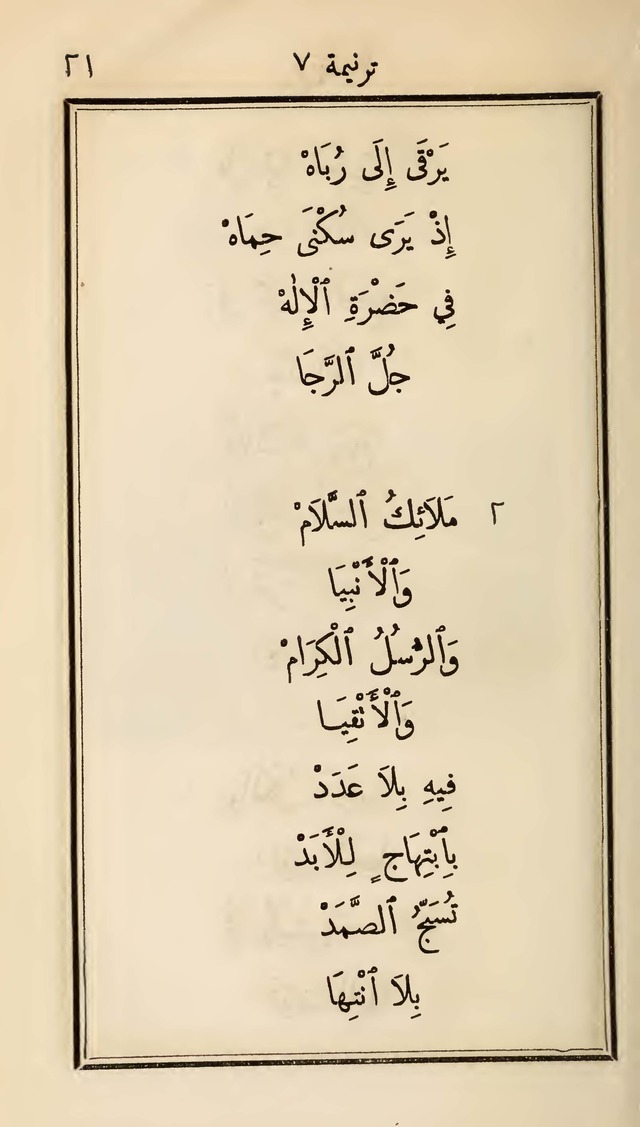 ترنيمة ٧ ٢١
يَرْقَى إِلَى رُبَاهْ
إِذْ يَرَى سُكْنَى حِمَاهْ
فِي حَضْرَةِ ٱلْإِلٰهْ
جُلَّ ٱلرَّجَا
٢ مَلَائِكُ ٱلسَّلَامْ
وَٱلْأَنْبِيَا
وَٱلرُّسُلُ ٱلْكِرَامْ
وَٱلْأَتْقِيَا
فِيهِ بِلَا عَدَدْ
بِٱبْتِهَاجٍ لِلْأَبَدْ
تُسَبِّحُ ٱلصَّمَدْ
بِلَا ٱنْتِهَا